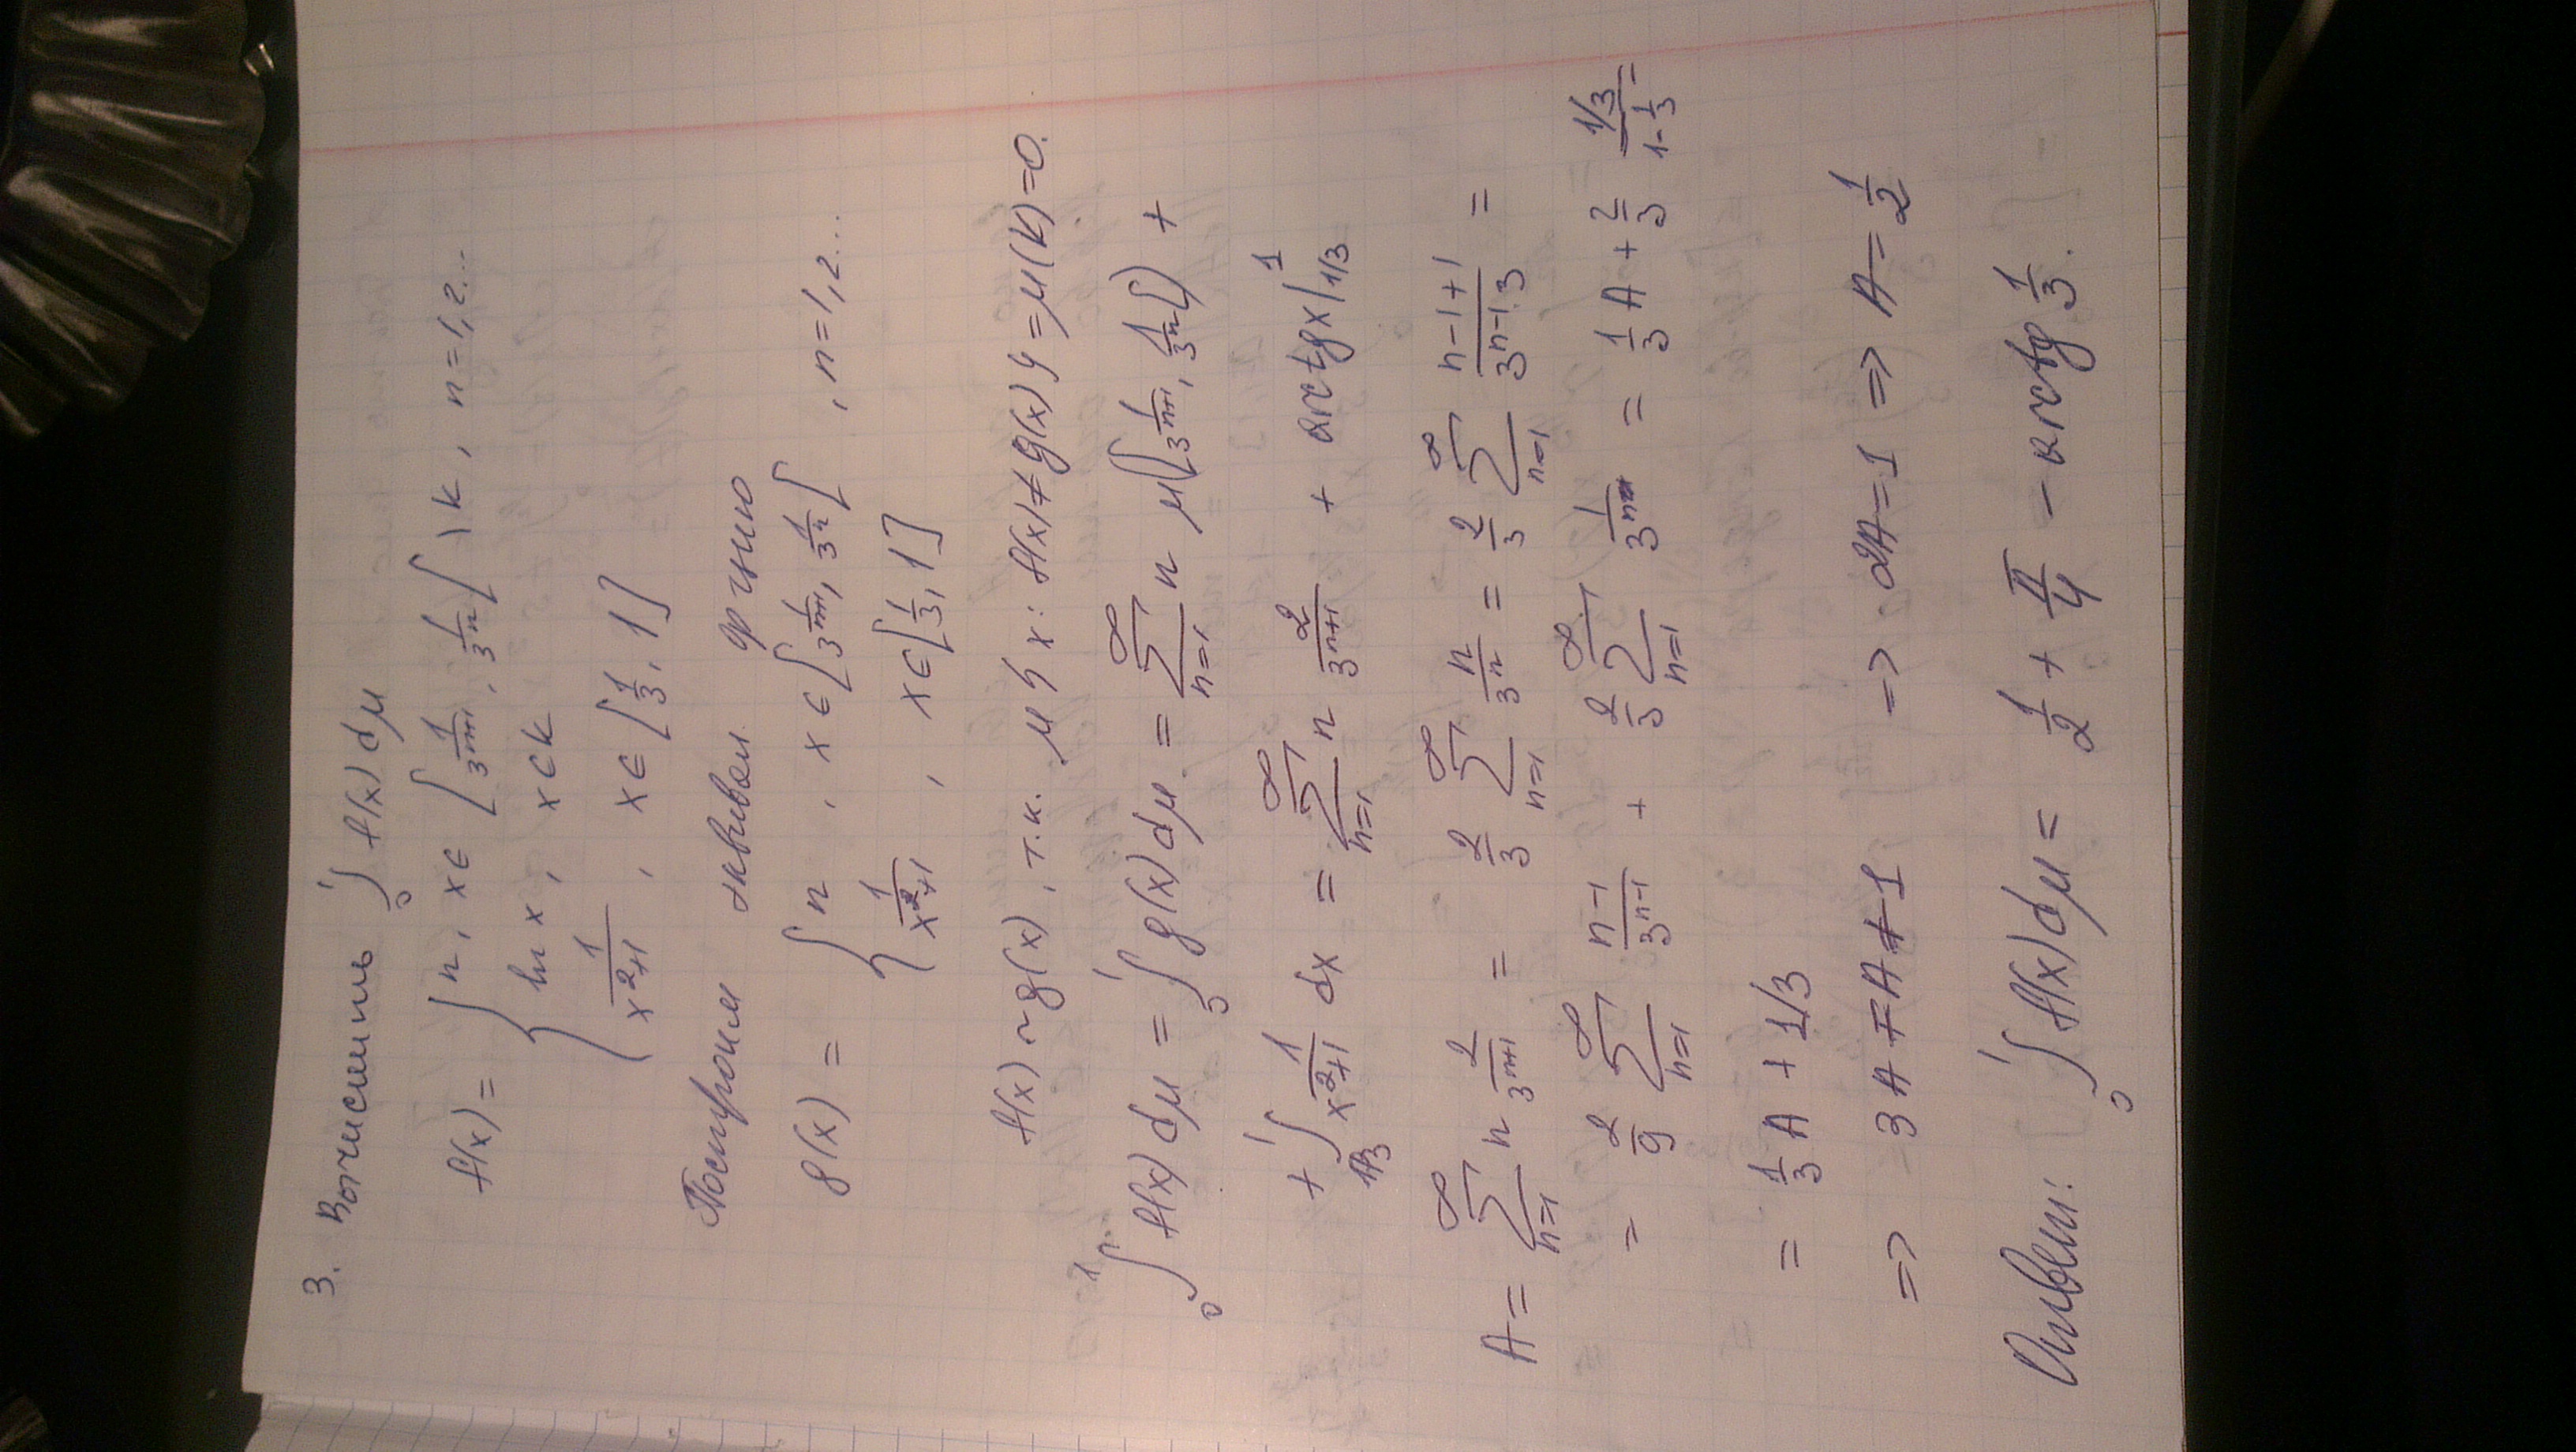 3. Вычислить ∫₀¹ f(x)dμ
f(x) = { n, x ∈ [1/3ⁿ⁺¹, 1/3ⁿ[ \ K, n=1,2...
ln x, x ∈ K
1/(x²+1), x ∈ [1/3, 1]
Построим эквивал. ф-цию
g(x) = { n, x ∈ [1/3ⁿ⁺¹, 1/3ⁿ[, n=1,2...
1/(x²+1), x ∈ [1/3, 1]
f(x) ~ g(x), т.к. μ{x: f(x) ≠ g(x)} = μ(K) = 0.
∫₀¹ f(x)dμ = ∫₀¹ g(x)dμ = ∑ₙ₌₁^∞ n μ([1/3ⁿ⁺¹, 1/3ⁿ[) +
+ ∫_{1/3}^1 1/(x²+1) dx = ∑ₙ₌₁^∞ n 2/3ⁿ⁺¹ + arctg x |_{1/3}^1
A = ∑ₙ₌₁^∞ n 2/3ⁿ⁺¹ = 2/3 ∑ₙ₌₁^∞ n/3ⁿ = 2/3 ∑ₙ₌₁^∞ (n-1+1)/(3ⁿ⁻¹·3) =
= 2/9 ∑ₙ₌₁^∞ (n-1)/3ⁿ⁻¹ + 2/3 ∑ₙ₌₁^∞ 1/3ⁿ = 1/3 A + 2/3 (1/3)/(1-1/3) =
= 1/3 A + 1/3
=> 3A = A + 1 => 2A = 1 => A = 1/2
Ответ: ∫₀¹ f(x)dμ = 1/2 + π/4 - arctg 1/3.